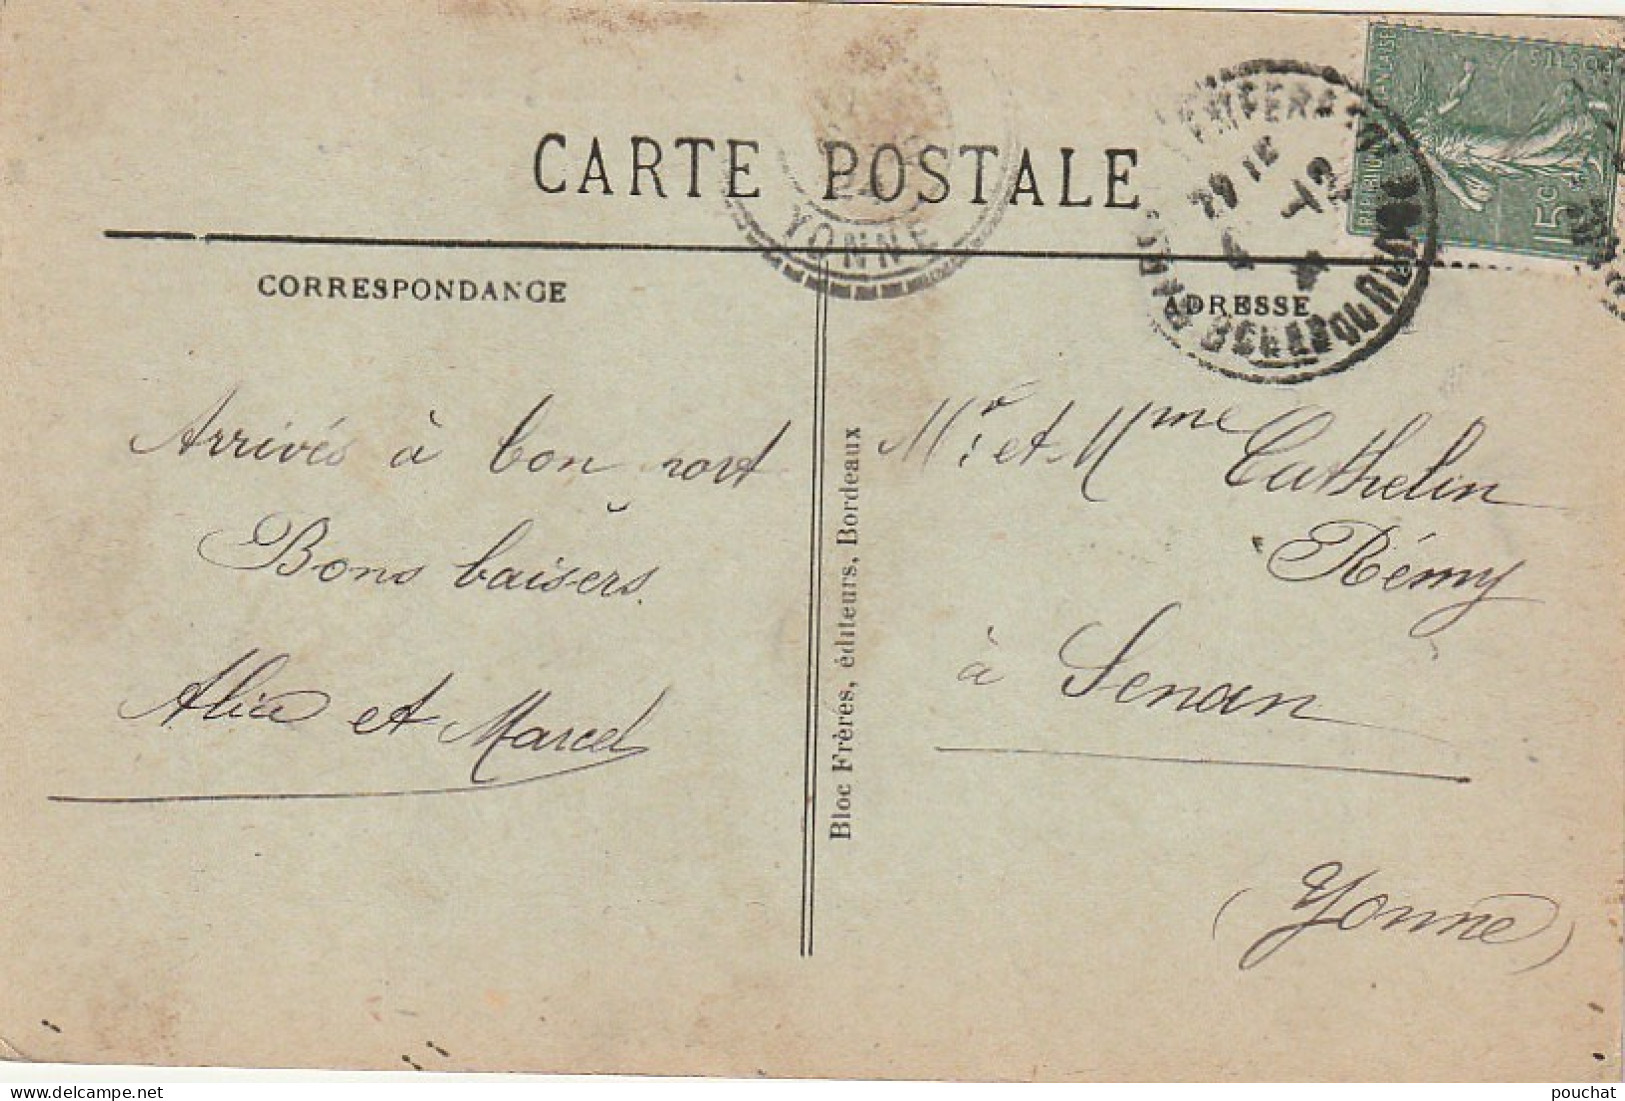 CARTE POSTALE
YONNE
POSTES
15c
CORRESPONDANCE
ADRESSE
Arrivés à bon port
Bons baisers.
Alice et Marcel
Bloc Frères, éditeurs, Bordeaux
Mr. et Mme Cathelin
Rémy
à Senan
(Yonne)
pouchat